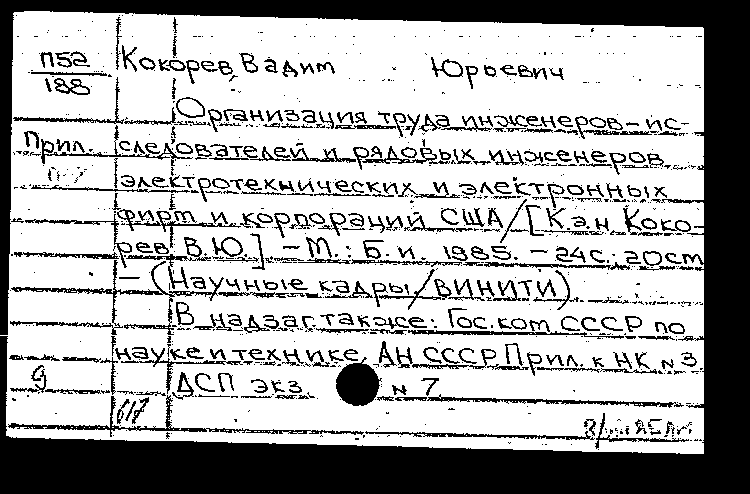 П52 Кокорев, Вадим Юрьевич
188
Организация труда инженеров-ис-
Прил. следователей и рядовых инженеров
электротехнических и электронных
фирм и корпораций США/[К.э.н. Коко-
рев В.Ю.] - М.: Б.и. 1985. - 24с.; 20см
- (Научные кадры/ВИНИТИ).
В надзаг. также: Гос. ком. СССР по
науке и технике, АН СССР. Прил. к НК N 3
ДСП экз. N 7.